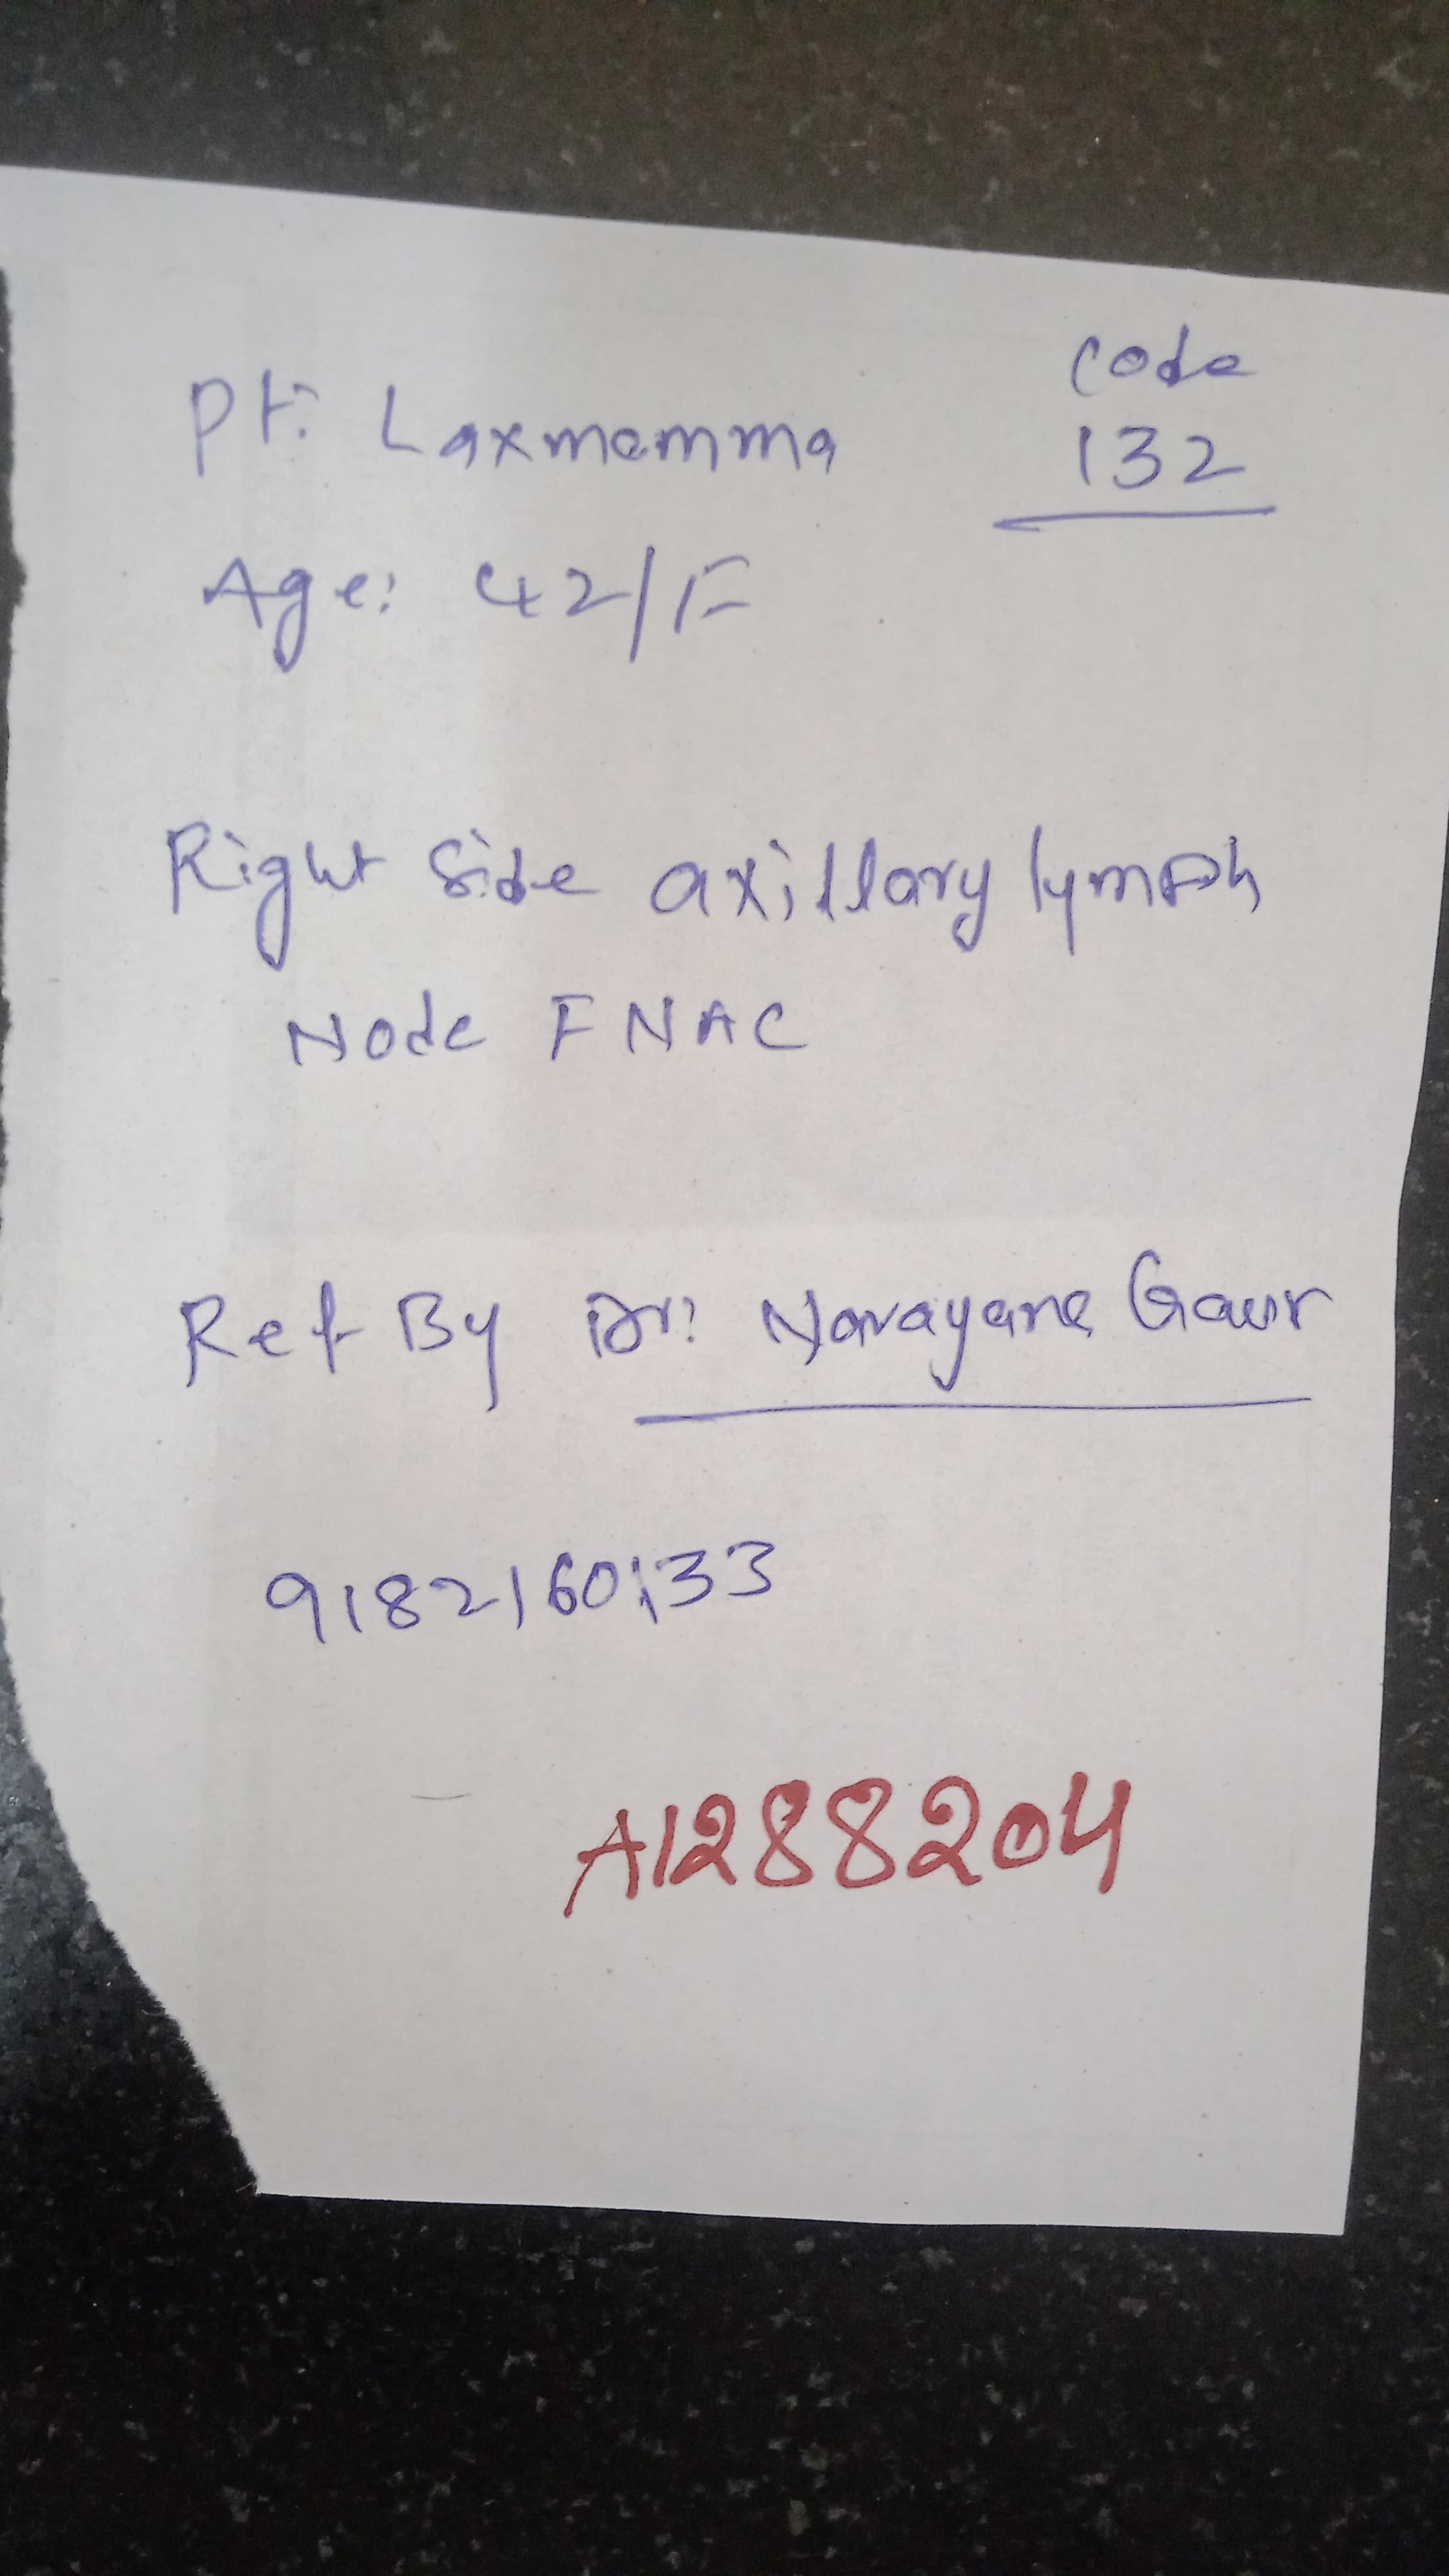 code
Pt: Laxmamma 132
Age: 42/F
Right Side axillary lymph
Node FNAC
Ref By Dr: Narayana Gaur
9182160133
A1288204